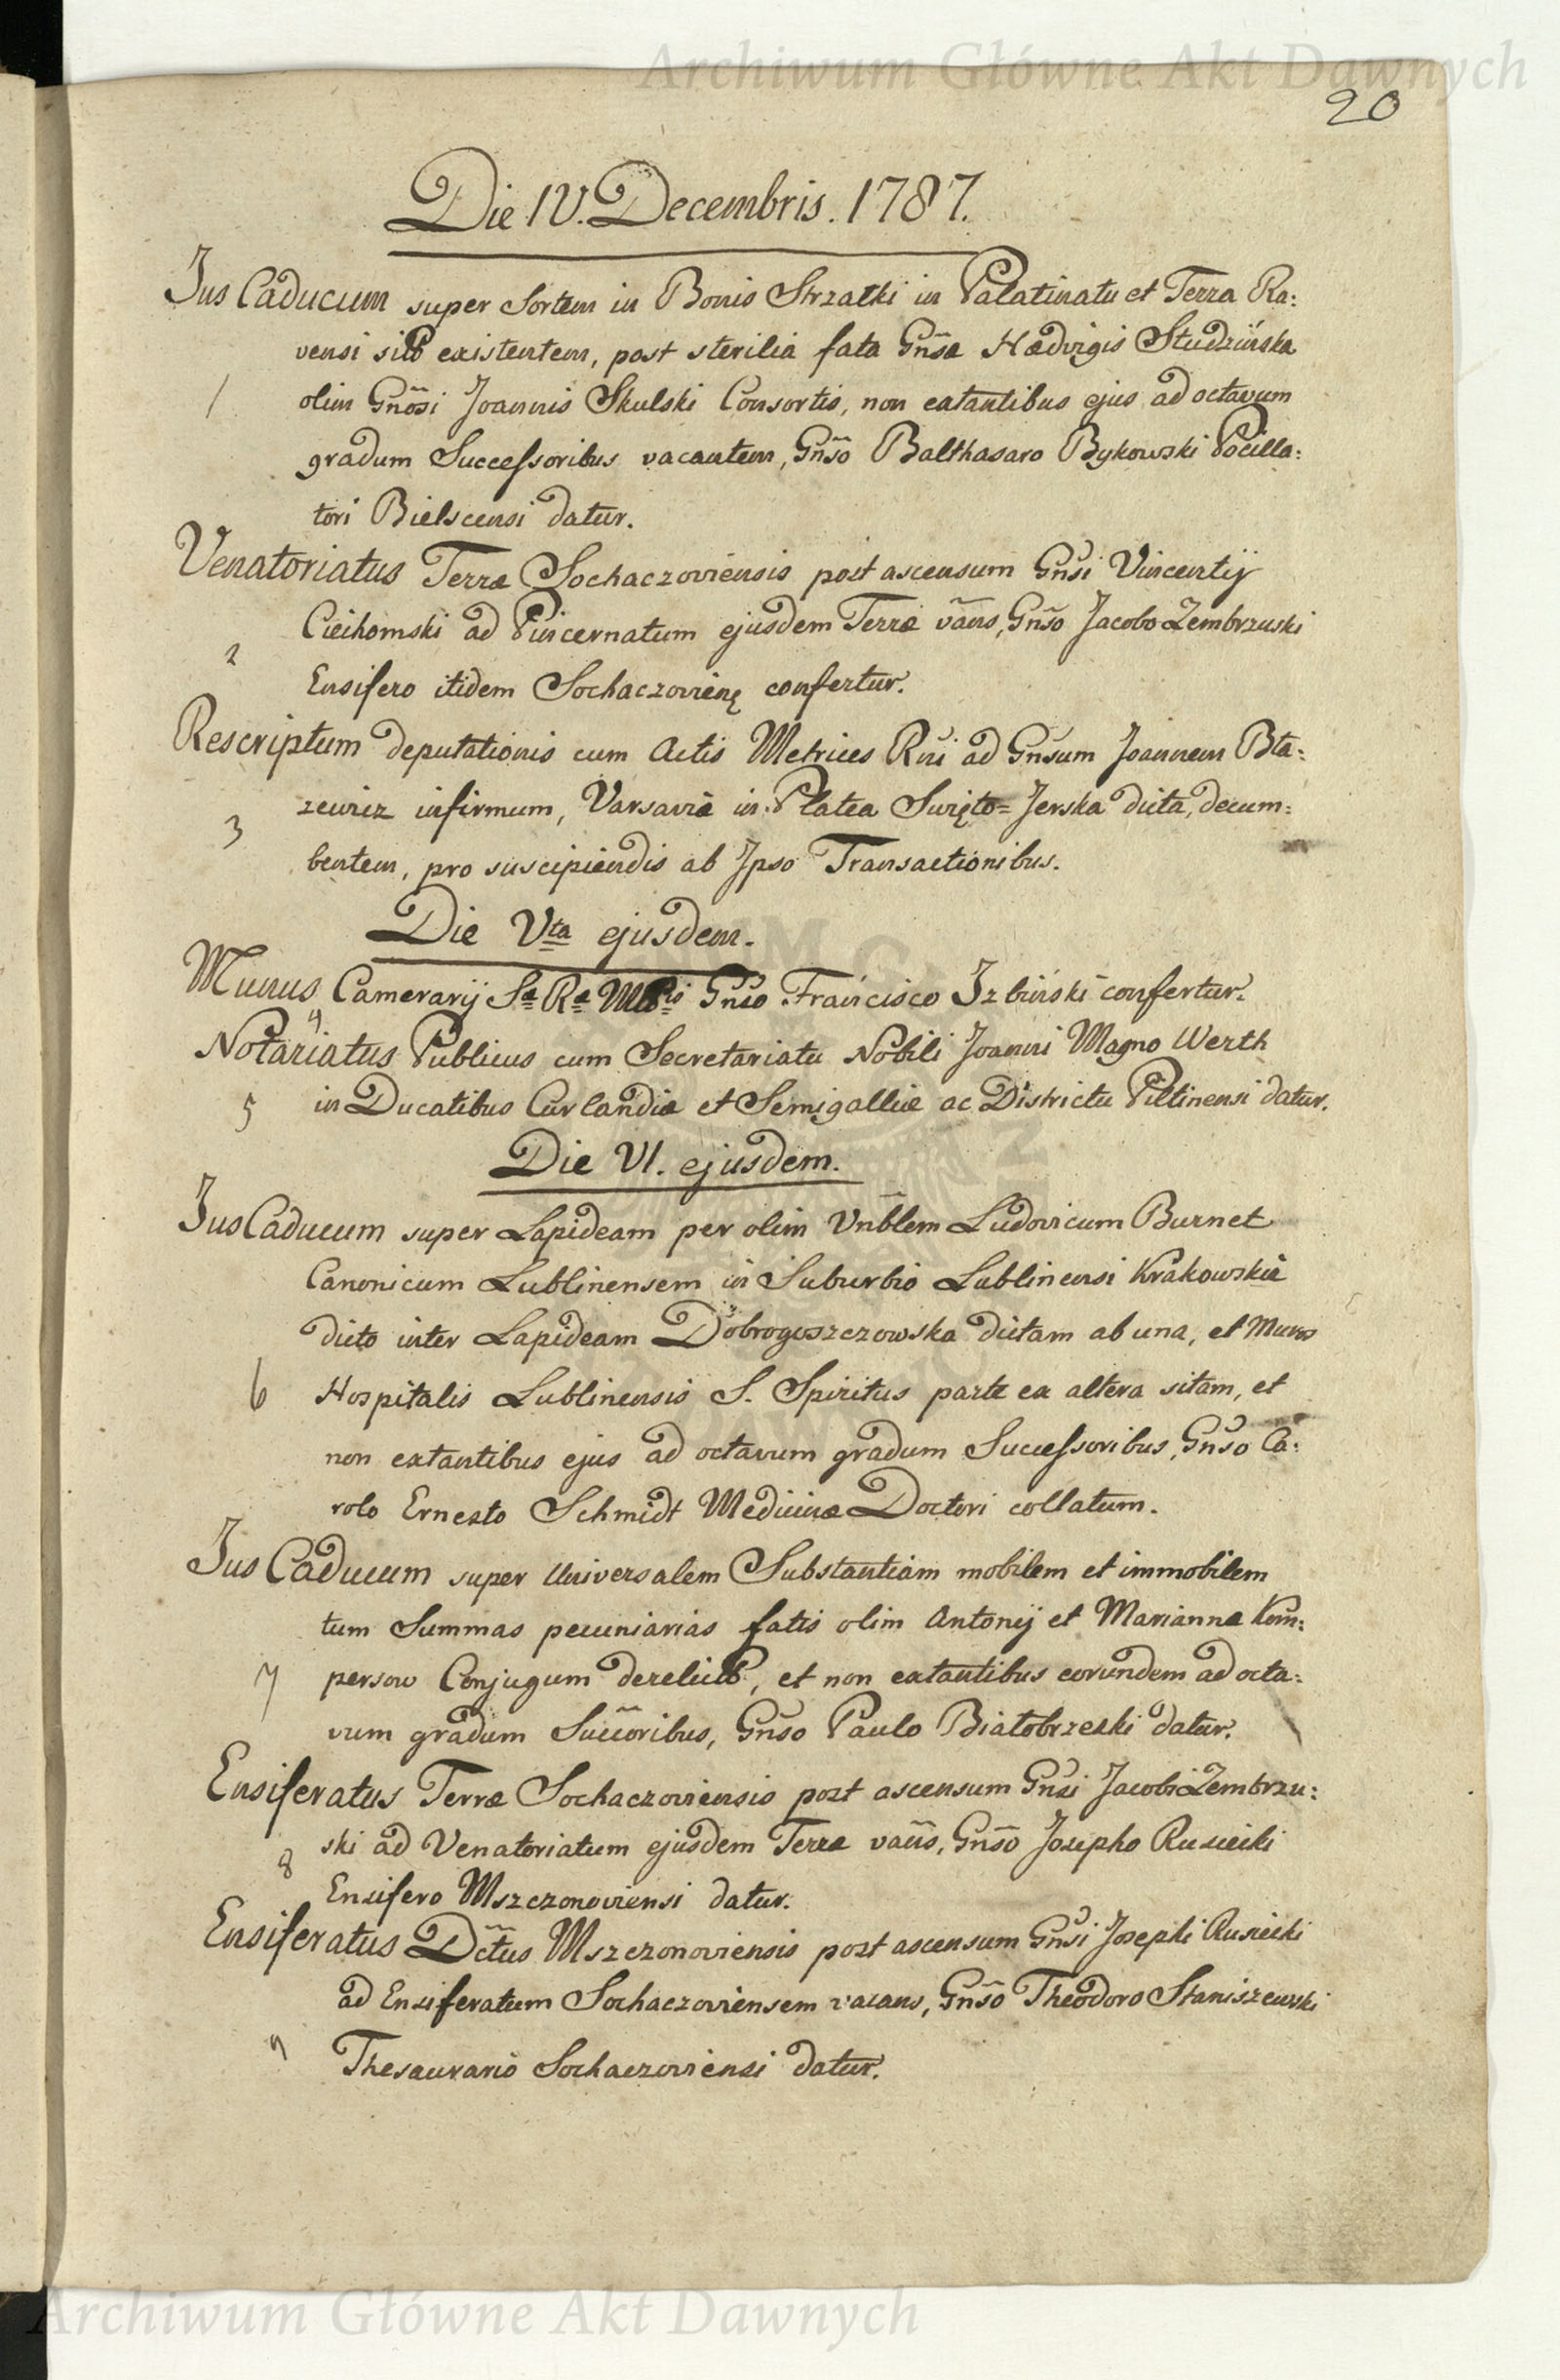 Archiwum Główne Akt Dawnych
20
Die IV. Decembris. 1787.
Jus Caducum super Sortem in Bonis Strzałki in Palatinatu et Terra Ra:
vensi existentem, post sterilia fata Gnsæ Hædvigis Studzińska
1 olim Gnosi Joannis Skulski Consortis, non extantibus ejus ad octavum
gradum Successoribus vacantem, Gnso Balthasaro Bykowski Pocilla:
tori Bielscensi datur.
Venatoriatus Terræ Sochaczoviensis post ascensum Gnsi Vincentij
Cieihomski ad Pincernatum ejusdem Terræ vãns, Gnso Jacobo Zembrzuski
2
Ensifero itidem Sochaczovienę confertur.
Rescriptum deputationis cum Actis Metrices Rni ad Gnsum Joannem Bła:
zewicz infirmum, Varsaviæ in Platea Swięto=Jerska dicta, decum:
3
bentem, pro suscipiendis ab Ipso Transactionibus.
Die Vta ejusdem.
Munus Camerarij Sæ Ræ Mtis Gnso Francisco Izbiński confertur.
4
Notariatus Publicus cum Secretariatu Nobili Joanni Magno Werth
5 in Ducatibus Curlandiæ et Semigalliæ ac Districtu Piltinensi datur.
Die VI. ejusdem.
Jus Caducum super Lapideam per olim Vnblem Ludovicum Burnet
Canonicum Lublinensem in Suburbio Lublinensi Krakowskie
dicto inter Lapideam Dobrogoszczowska dictam ab una, et Muros
6 Hospitalis Lublinensis S. Spiritus parte ex altera sitam, et
non extantibus ejus ad octavum gradum Successoribus, Gnso Ca:
rolo Ernesto Schmidt Medicinæ Doctori collatum.
Jus Caducum super Universalem Substantiam mobilem et immobilem
tum Summas pecuniarias fatis olim Antonij et Mariannæ Kem:
7 persow Conjugum derelict, et non extantibus eorundem ad octa:
vum gradum Succoribus, Gnso Paulo Białobrzeski datur.
Ensiferatus Terræ Sochaczoviensis post ascensum Gnsi Jacobi Zembrzu:
ski ad Venatoriatum ejusdem Terræ vãns, Gnso Josepho Rusiecki
8
Ensifero Mszczonoviensi datur.
Ensiferatus Dctus Mszczonoviensis post ascensum Gnsi Josephi Rusiecki
ad Ensiferatum Sochaczoviensem vacans, Gnso Theodoro Staniszewski
9 Thesaurario Sochaczoviensi datur.
Archiwum Główne Akt Dawnych